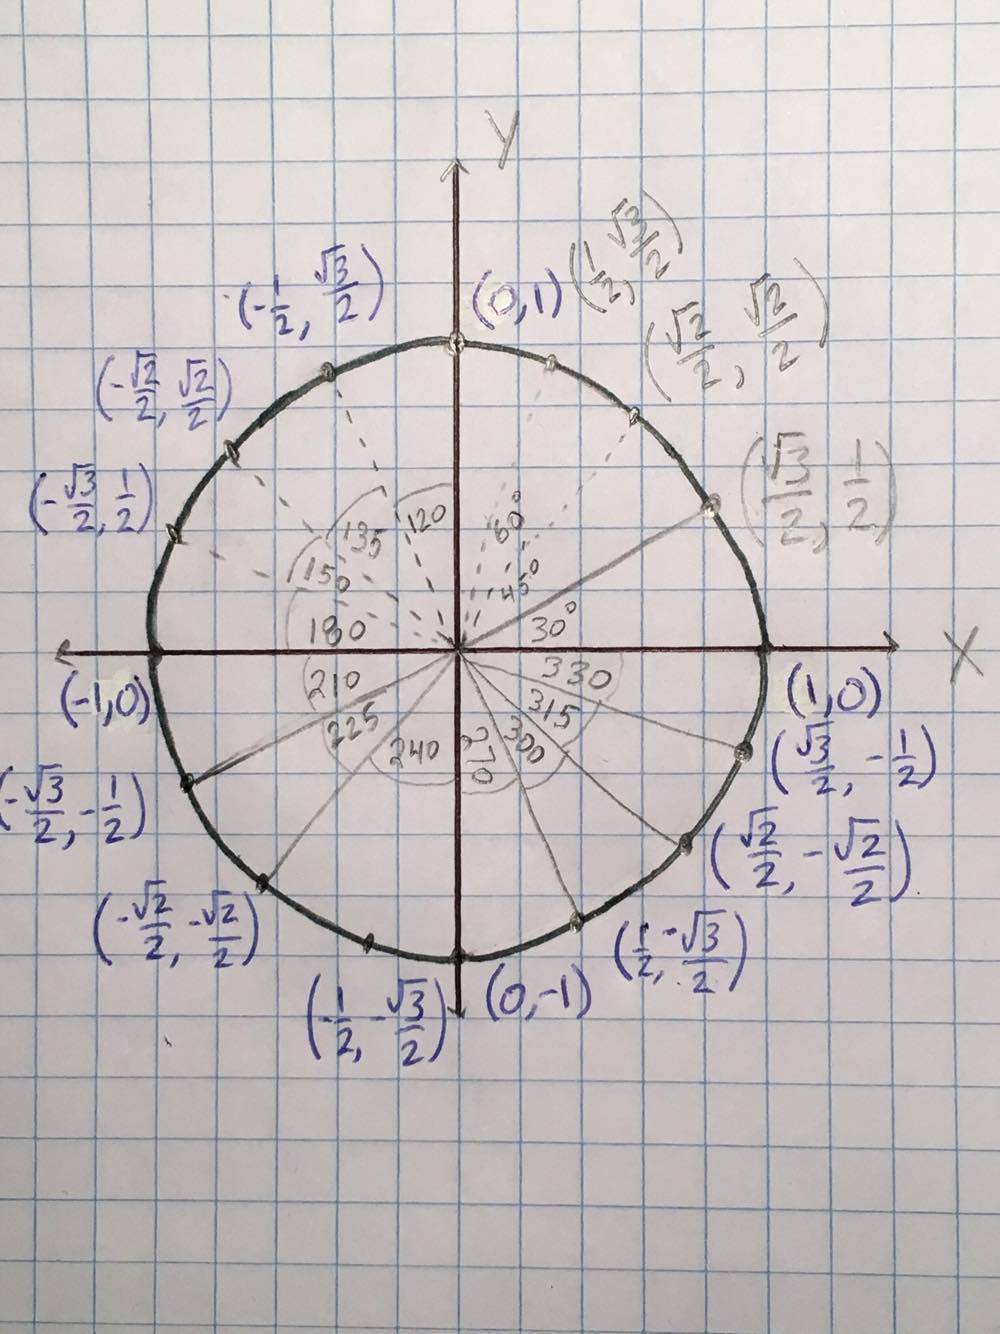 Y
(1/2, √3/2)
(-1/2, √3/2)
(0,1)
(√2/2, √2/2)
(-√2/2, √2/2)
(√3/2, 1/2)
(-√3/2, 1/2)
135
120
60°
150
45°
180
30°
X
210
330
(-1,0)
(1,0)
225
315
240
270
300
(√3/2, -1/2)
(-√3/2, -1/2)
(√2/2, -√2/2)
(-√2/2, -√2/2)
(1/2, -√3/2)
(-1/2, -√3/2)
(0,-1)